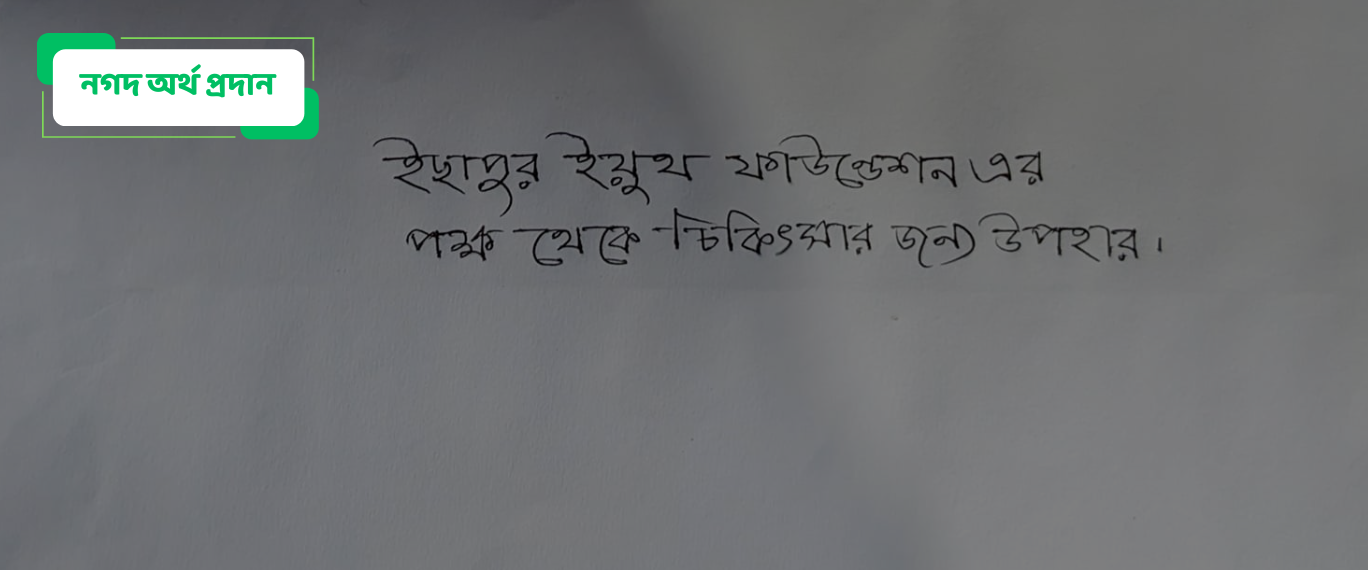 নগদ অর্থ প্রদান
ইছাপুর ইয়ুথ ফাউন্ডেশন এর
পক্ষ থেকে চিকিৎসার জন্য উপহার।